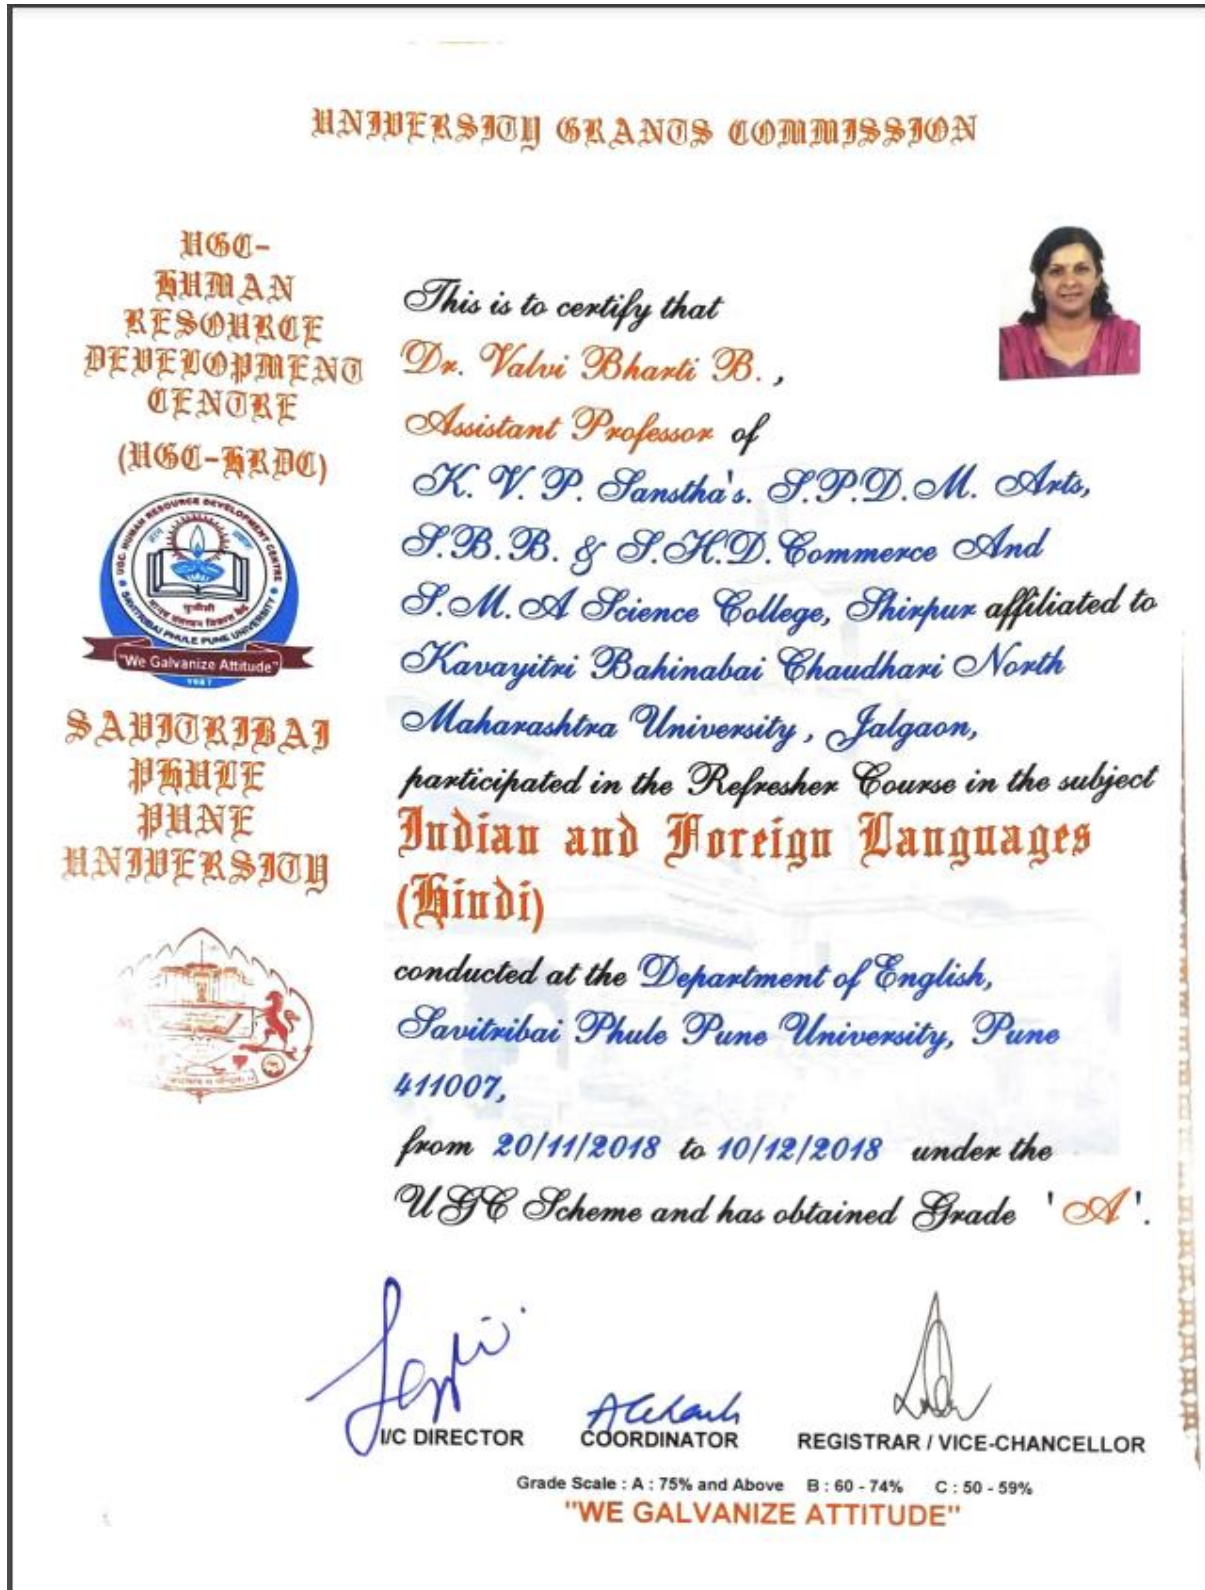 UNIVERSITY GRANTS COMMISSION
UGC-
HUMAN
RESOURCE
DEVELOPMENT
CENTRE
(UGC-HRDC)
UGC- HUMAN RESOURCE DEVELOPMENT CENTRE
SAVITRIBAI PHULE PUNE UNIVERSITY
"We Galvanize Attitude"
1987
SAVITRIBAI
PHULE
PUNE
UNIVERSITY
This is to certify that
Dr. Valvi Bharti B. ,
Assistant Professor of
K. V. P. Sanstha's. S.P.D. M. Arts,
S.B.B. & S.H.D. Commerce And
S.M. A Science College, Shirpur affiliated to
Kavayitri Bahinabai Chaudhari North
Maharashtra University , Jalgaon,
participated in the Refresher Course in the subject
Indian and Foreign Languages
(Hindi)
conducted at the Department of English,
Savitribai Phule Pune University, Pune
411007,
from 20/11/2018 to 10/12/2018 under the
UGC Scheme and has obtained Grade ' A '.
I/C DIRECTOR
COORDINATOR
REGISTRAR / VICE-CHANCELLOR
Grade Scale : A : 75% and Above B : 60 - 74% C : 50 - 59%
"WE GALVANIZE ATTITUDE"